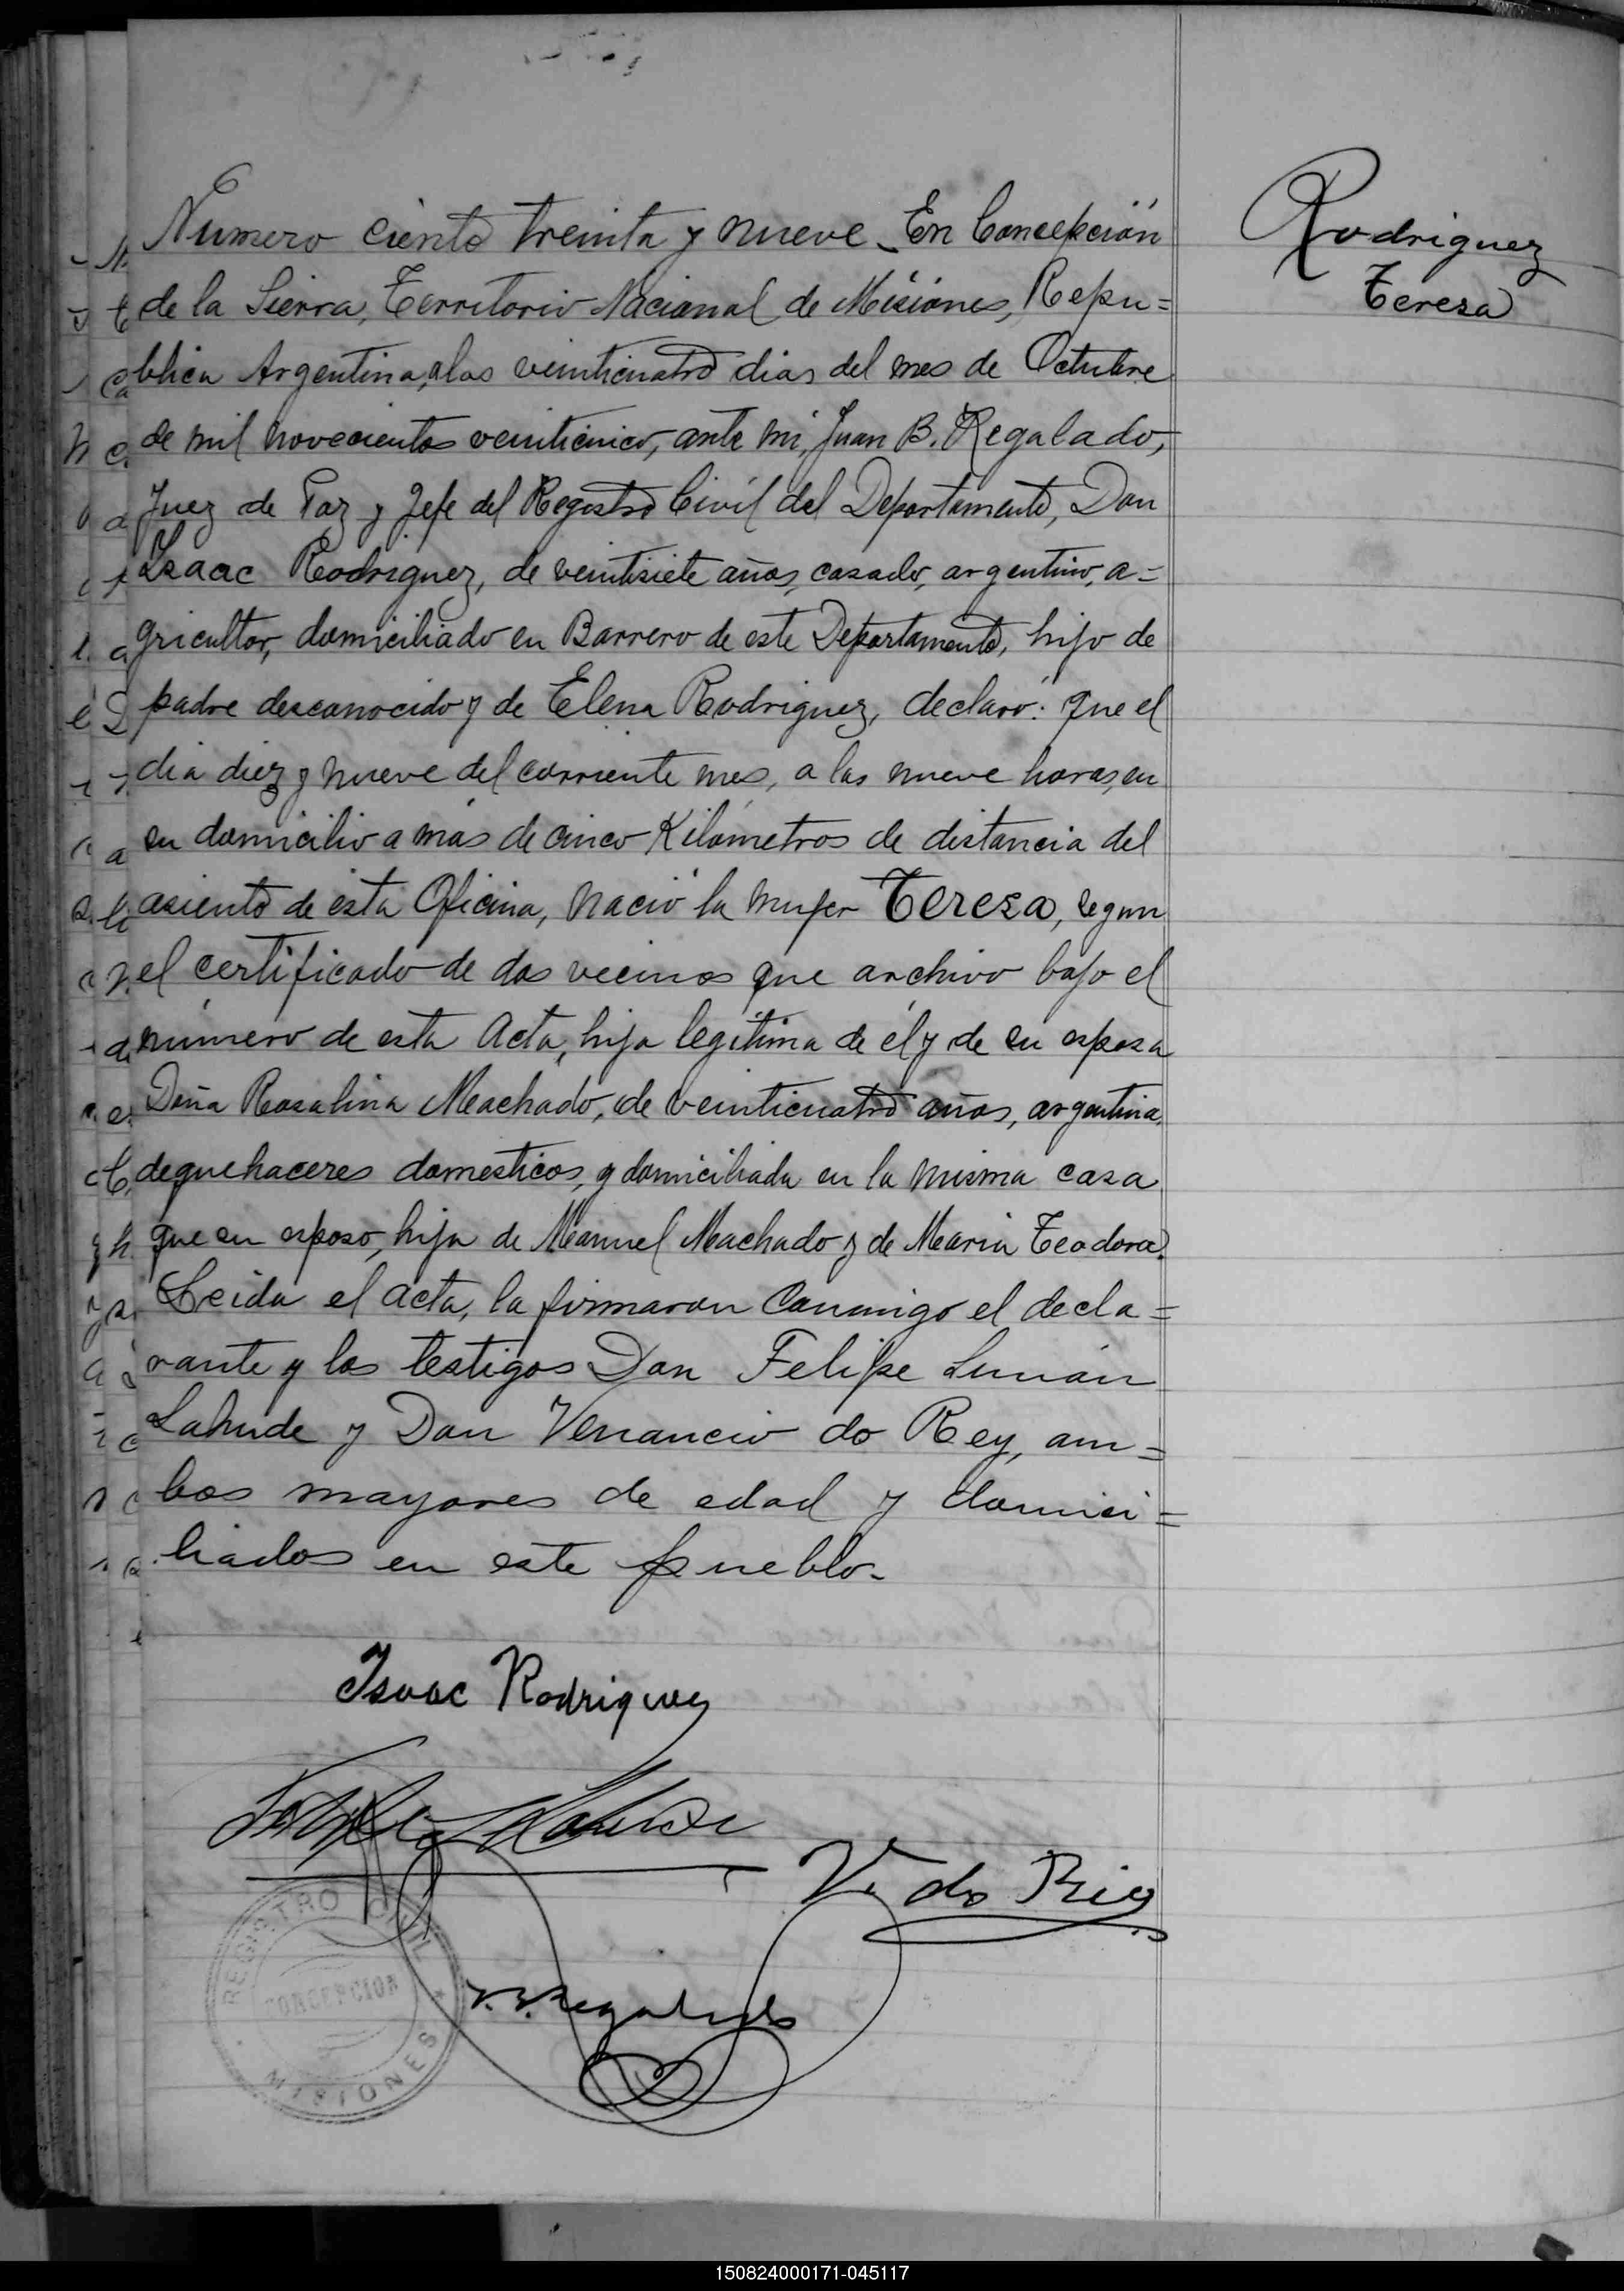 Rodriguez
Teresa
Numero ciento treinta y nueve_En Concepción
de la Sierra, Territorio Nacional de Misiones, Repu=
blica Argentina, a los veinticuatro dias del mes de Octubre
de mil novecientos veinticinco, ante mi, Juan B. Regalado,
Juez de Paz y Jefe del Registro Civil del Departamento, Don
Isaac Rodriguez, de veintisiete años, casado, argentino, a=
gricultor, domiciliado en Barrero de este Departamento, hijo de
padre desconocido y de Elena Rodriguez, declaró: que el
dia diez y nueve del corriente mes, a las nueve horas, en
su domicilio a más de cinco Kilómetros de distancia del
asiento de esta Oficina, nació la mujer Teresa, segun
el certificado de dos vecinos que archivo bajo el
número de esta Acta, hija legitima de él y de su esposa
Doña Rosalina Machado, de veinticuatro años, argentina,
de quehaceres domesticos, y domiciliada en la misma casa
que su esposo, hija de Manuel Machado y de Maria Teodora.
Leida el acta, la firmaron conmigo el decla=
rante y los testigos Don Felipe Lunián
Lahude y Don Venancio do Rey, am=
bos mayores de edad y domici=
liados en este pueblo.
Isaac Rodriguez
V. do Rey
REGISTRO CIVIL
CONCEPCION
MISIONES
150824000171-045117